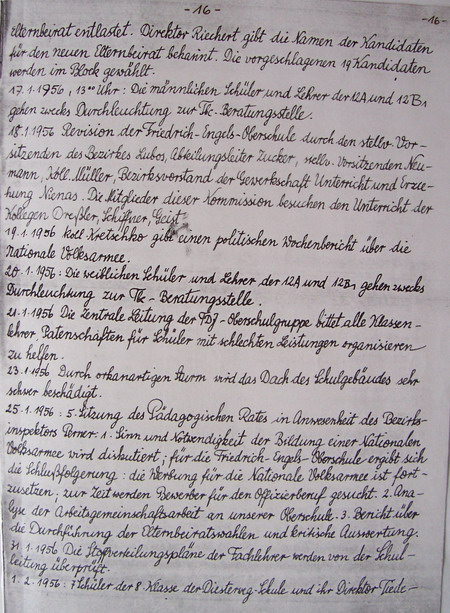 - 16 -
-16-
elternbeirat entlastet. Direktor Riechert gibt die Namen der Kandidaten
für den neuen Elternbeirat bekannt. Die vorgeschlagenen 19 Kandidaten
werden im Block gewählt.
17.1.1956, 13⁰⁰ Uhr: Die männlichen Schüler und Lehrer der 12A und 12B₁
gehen zwecks Durchleuchtung zur Tbc-Beratungsstelle.
18.1.1956 Revision der Friedrich-Engels-Oberschule durch den stellv. Vor-
sitzenden des Bezirkes Lubos, Abteilungsleiter Zucker, stellv. Vorsitzenden Neu-
mann, Koll. Müller, Bezirksvorstand der Gewerkschaft Unterricht und Erzie-
hung Nienas. Die Mitglieder dieser Kommission besuchen den Unterricht der
Kollegen Dreßler, Schiffner, Geist.
19.1.1956 Koll. Kretschko gibt einen politischen Wochenbericht über die
Nationale Volksarmee.
20.1.1956: Die weiblichen Schüler und Lehrer der 12A und 12B₁ gehen zwecks
Durchleuchtung zur Tbc-Beratungsstelle.
21.1.1956 Die Zentrale Leitung der FDJ-Oberschulgruppe bittet alle Klassen-
lehrer, Patenschaften für Schüler mit schlechten Leistungen organisieren
zu helfen.
23.1.1956 Durch orkanartigen Sturm wird das Dach des Schulgebäudes sehr
schwer beschädigt.
25.1.1956: 5. Sitzung des Pädagogischen Rates in Anwesenheit des Bezirks-
inspektors Perner: 1. Sinn und Notwendigkeit der Bildung einer Nationalen
Volksarmee wird diskutiert; für die Friedrich-Engels-Oberschule ergibt sich
die Schlußfolgerung: die Werbung für die Nationale Volksarmee ist fort-
zusetzen; zur Zeit werden Bewerber für den Offizierberuf gesucht. 2. Ana-
lyse der Arbeitsgemeinschaftsarbeit an unserer Oberschule. 3. Bericht über
die Durchführung der Elternbeiratswahlen und kritische Auswertung.
31.1.1956 Die Stoffverteilungspläne der Fachlehrer werden von der Schul-
leitung überprüft.
1.2.1956: 7 Schüler der 8. Klasse der Diesterweg-Schule und ihr Direktor Tiede-